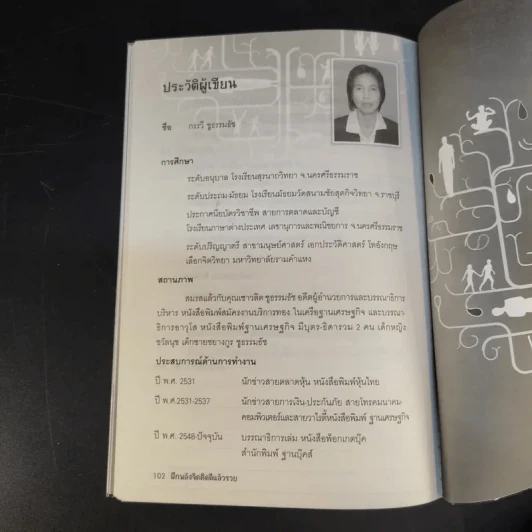 ประวัติผู้เขียน
ชื่อ กรรวี ชูธรรมธัช
การศึกษา
ระดับอนุบาล โรงเรียนสุรนาถวิทยา จ.นครศรีธรรมราช
ระดับประถม-มัธยม โรงเรียนมัธยมวัดสนามชัยสุตกิจวิทยา จ.ราชบุรี
ประกาศนียบัตรวิชาชีพ สายการตลาดและบัญชี
โรงเรียนภาษาต่างประเทศ เลขานุการและพณิชยการ จ.นครศรีธรรมราช
ระดับปริญญาตรี สาขามนุษย์ศาสตร์ เอกประวัติศาสตร์ โทอังกฤษ
เลือกจิตวิทยา มหาวิทยาลัยรามคำแหง
สถานภาพ
สมรสแล้วกับคุณเชาวลิต ชูธรรมธัช อดีตผู้อำนวยการและบรรณาธิการ
บริหาร หนังสือพิมพ์สมัครงานบริการทอง ในเครือฐานเศรษฐกิจ และบรรณา-
ธิการอาวุโส หนังสือพิมพ์ฐานเศรษฐกิจ มีบุตร-ธิดารวม 2 คน เด็กหญิง
ชวัลนุช เด็กชายชยางกูร ชูธรรมธัช
ประสบการณ์ด้านการทำงาน
ปี พ.ศ. 2531 นักข่าวสายตลาดหุ้น หนังสือพิมพ์หุ้นไทย
ปี พ.ศ.2531-2537 นักข่าวสายการเงิน-ประกันภัย สายโทรคมนาคม-
คอมพิวเตอร์และสายวาไรตี้หนังสือพิมพ์ ฐานเศรษฐกิจ
ปี พ.ศ. 2548-ปัจจุบัน บรรณาธิการเล่ม หนังสือพ็อกเกตบุ๊ค
สำนักพิมพ์ ฐานบุ๊คส์
102 ฝึกพลังจิตคิดดีแล้วรวย